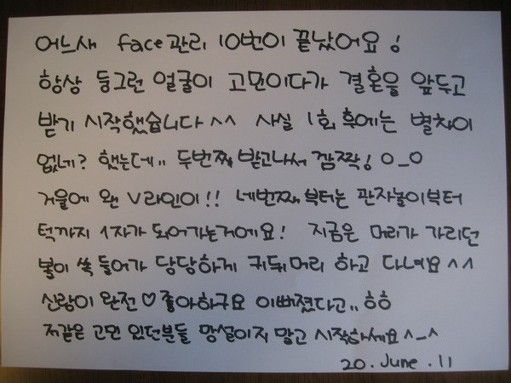 어느새 face관리 10번이 끝났어요!
항상 둥그런 얼굴이 고민이다가 결혼을 앞두고
받기 시작했습니다 ^^ 사실 1회 후에는 별차이
없네? 했는데.. 두번째 받고나서 깜짝! O_O
거울에 왠 V라인이!! 네번째부터는 관자놀이부터
턱까지 1자가 되어가는거에요! 지금은 머리가 가리던
볼이 쏙 들어가 당당하게 귀뒤머리 하고 다녀요^^
신랑이 완전♡좋아하구요 이뻐졌다고.. ㅎㅎ
저같은 고민 있던분들 망설이지 말고 시작하세요^-^
20. June. 11